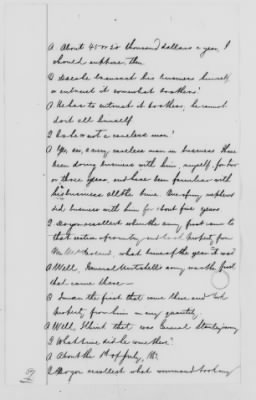 A About 45 or 50 thousand dollars a year, I
should suppose, then
Q Does he transact his business himself
or entrust it somewhat to others?
A He has to entrust it to others, he cannot
do it all himself
Q Is he not a careless man?
A Yes, sir, a very careless man in business. I have
been doing business with him, myself, for two
or three years, and have been familiar with
his business all the time. One of my nephews
did business with him for about five years
Q Do you recollect when the army first came to
that section of country and took property from
Mr. McFarland, what time of the year it was
A Well, General Mitchell's army was the first
that came there —
Q I mean the first that came there and took
property from him in any quantity,
A Well, I think that was General Stanley's army
Q What time did he come there?
A About the 1st of July, '63.
Q Do you recollect what command took any